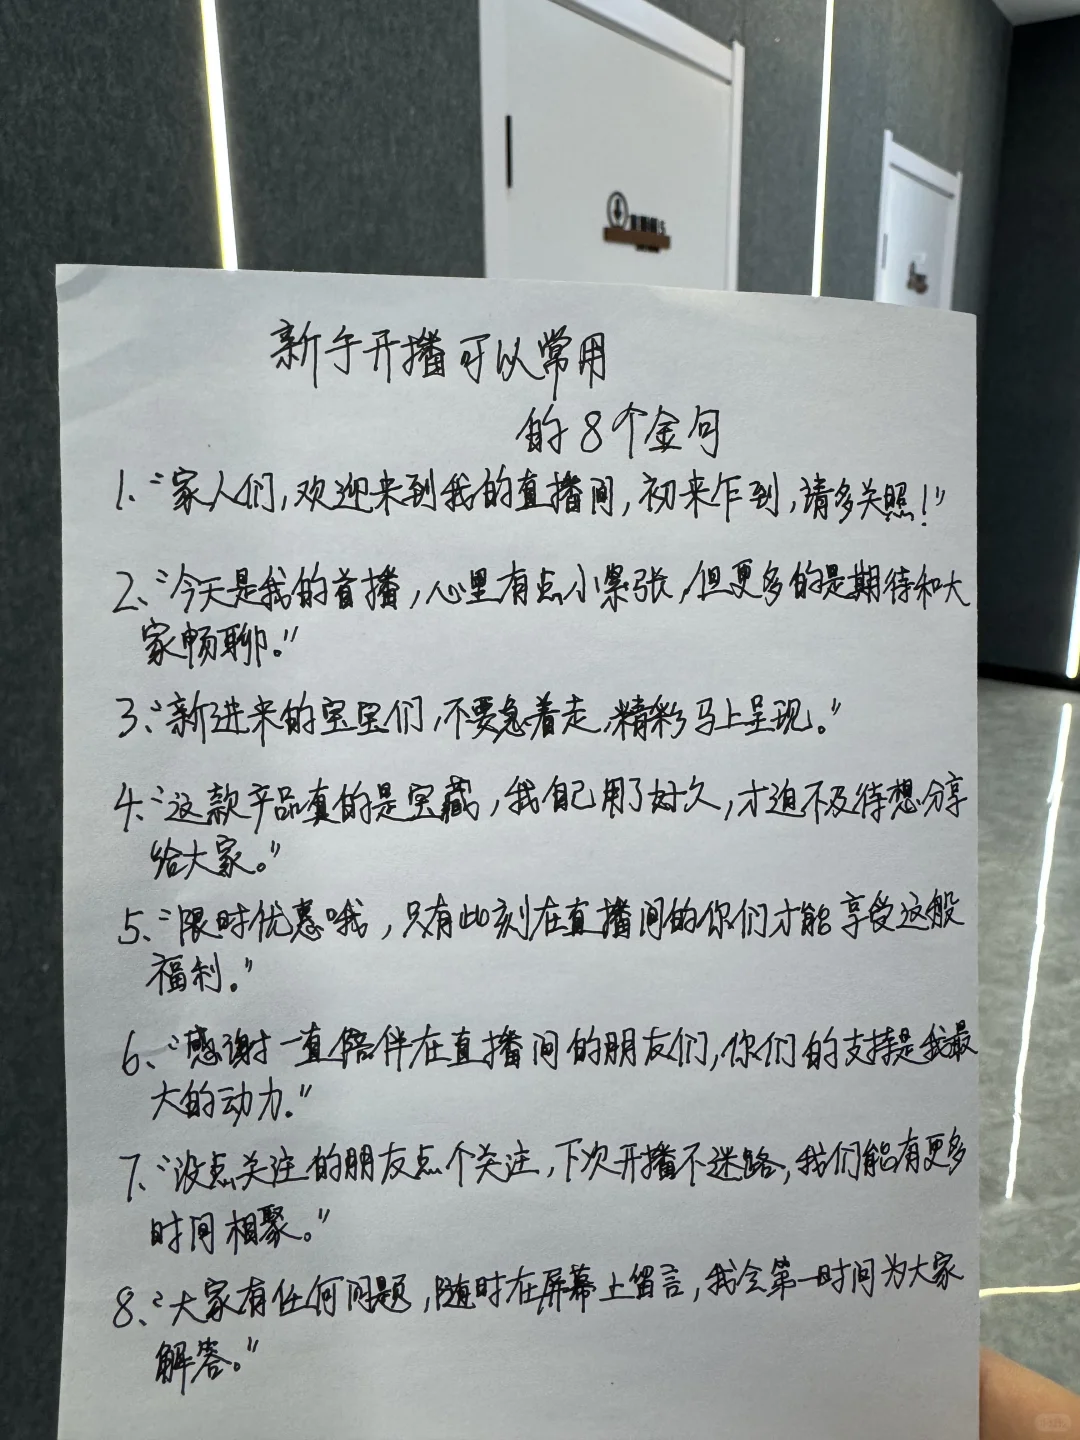 新手开播可以常用
的8个金句
1、“家人们,欢迎来到我的直播间,初来乍到,请多关照!”
2、“今天是我的首播,心里有点小紧张,但更多的是期待和大
家畅聊。”
3、“新进来的宝宝们,不要急着走,精彩马上呈现。”
4、“这款产品真的是宝藏,我自己用了好久,才迫不及待想分享
给大家。”
5、“限时优惠哦,只有此刻在直播间的你们才能享受这般
福利。”
6、“感谢一直陪伴在直播间的朋友们,你们的支持是我最
大的动力.”
7、“没点关注的朋友点个关注,下次开播不迷路,我们能有更多
时间相聚。”
8、“大家有任何问题,随时在屏幕上留言,我会第一时间为大家
解答。”